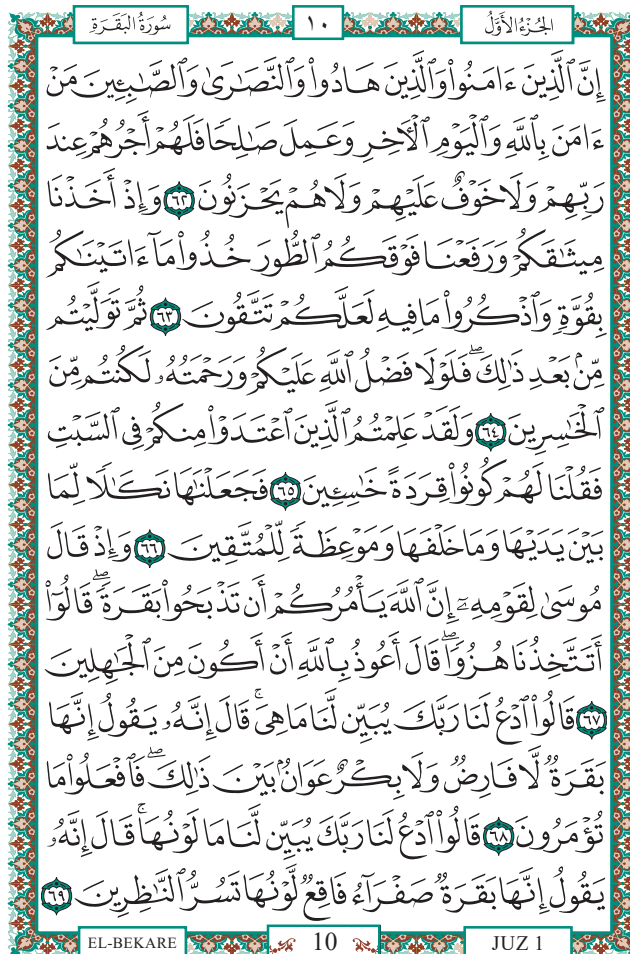 سُورَةُ البَقَرَةِ ١٠ الجُزْءُ الأَوَّلُ
إِنَّ ٱلَّذِينَ ءَامَنُوا۟ وَٱلَّذِينَ هَادُوا۟ وَٱلنَّصَٰرَىٰ وَٱلصَّٰبِـِٔينَ مَنْ
ءَامَنَ بِٱللَّهِ وَٱلْيَوْمِ ٱلْءَاخِرِ وَعَمِلَ صَٰلِحًا فَلَهُمْ أَجْرُهُمْ عِندَ
رَبِّهِمْ وَلَا خَوْفٌ عَلَيْهِمْ وَلَا هُمْ يَحْزَنُونَ ٦٢ وَإِذْ أَخَذْنَا
مِيثَٰقَكُمْ وَرَفَعْنَا فَوْقَكُمُ ٱلطُّورَ خُذُوا۟ مَآ ءَاتَيْنَٰكُم
بِقُوَّةٍ وَٱذْكُرُوا۟ مَا فِيهِ لَعَلَّكُمْ تَتَّقُونَ ٦٣ ثُمَّ تَوَلَّيْتُم
مِّنۢ بَعْدِ ذَٰلِكَ ۖ فَلَوْلَا فَضْلُ ٱللَّهِ عَلَيْكُمْ وَرَحْمَتُهُۥ لَكُنتُم مِّنَ
ٱلْخَٰسِرِينَ ٦٤ وَلَقَدْ عَلِمْتُمُ ٱلَّذِينَ ٱعْتَدَوْا۟ مِنكُمْ فِى ٱلسَّبْتِ
فَقُلْنَا لَهُمْ كُونُوا۟ قِرَدَةً خَٰسِـِٔينَ ٦٥ فَجَعَلْنَٰهَا نَكَٰلًا لِّمَا
بَيْنَ يَدَيْهَا وَمَا خَلْفَهَا وَمَوْعِظَةً لِّلْمُتَّقِينَ ٦٦ وَإِذْ قَالَ
مُوسَىٰ لِقَوْمِهِۦٓ إِنَّ ٱللَّهَ يَأْمُرُكُمْ أَن تَذْبَحُوا۟ بَقَرَةً ۖ قَالُوٓا۟
أَتَتَّخِذُنَا هُزُوًا ۖ قَالَ أَعُوذُ بِٱللَّهِ أَنْ أَكُونَ مِنَ ٱلْجَٰهِلِينَ
٦٧ قَالُوا۟ ٱدْعُ لَنَا رَبَّكَ يُبَيِّن لَّنَا مَا هِىَ ۚ قَالَ إِنَّهُۥ يَقُولُ إِنَّهَا
بَقَرَةٌ لَّا فَارِضٌ وَلَا بِكْرٌ عَوَانٌۢ بَيْنَ ذَٰلِكَ ۖ فَٱفْعَلُوا۟ مَا
تُؤْمَرُونَ ٦٨ قَالُوا۟ ٱدْعُ لَنَا رَبَّكَ يُبَيِّن لَّنَا مَا لَوْنُهَا ۚ قَالَ إِنَّهُۥ
يَقُولُ إِنَّهَا بَقَرَةٌ صَفْرَآءُ فَاقِعٌ لَّوْنُهَا تَسُرُّ ٱلنَّٰظِرِينَ ٦٩
EL-BEKARE 10 JUZ 1